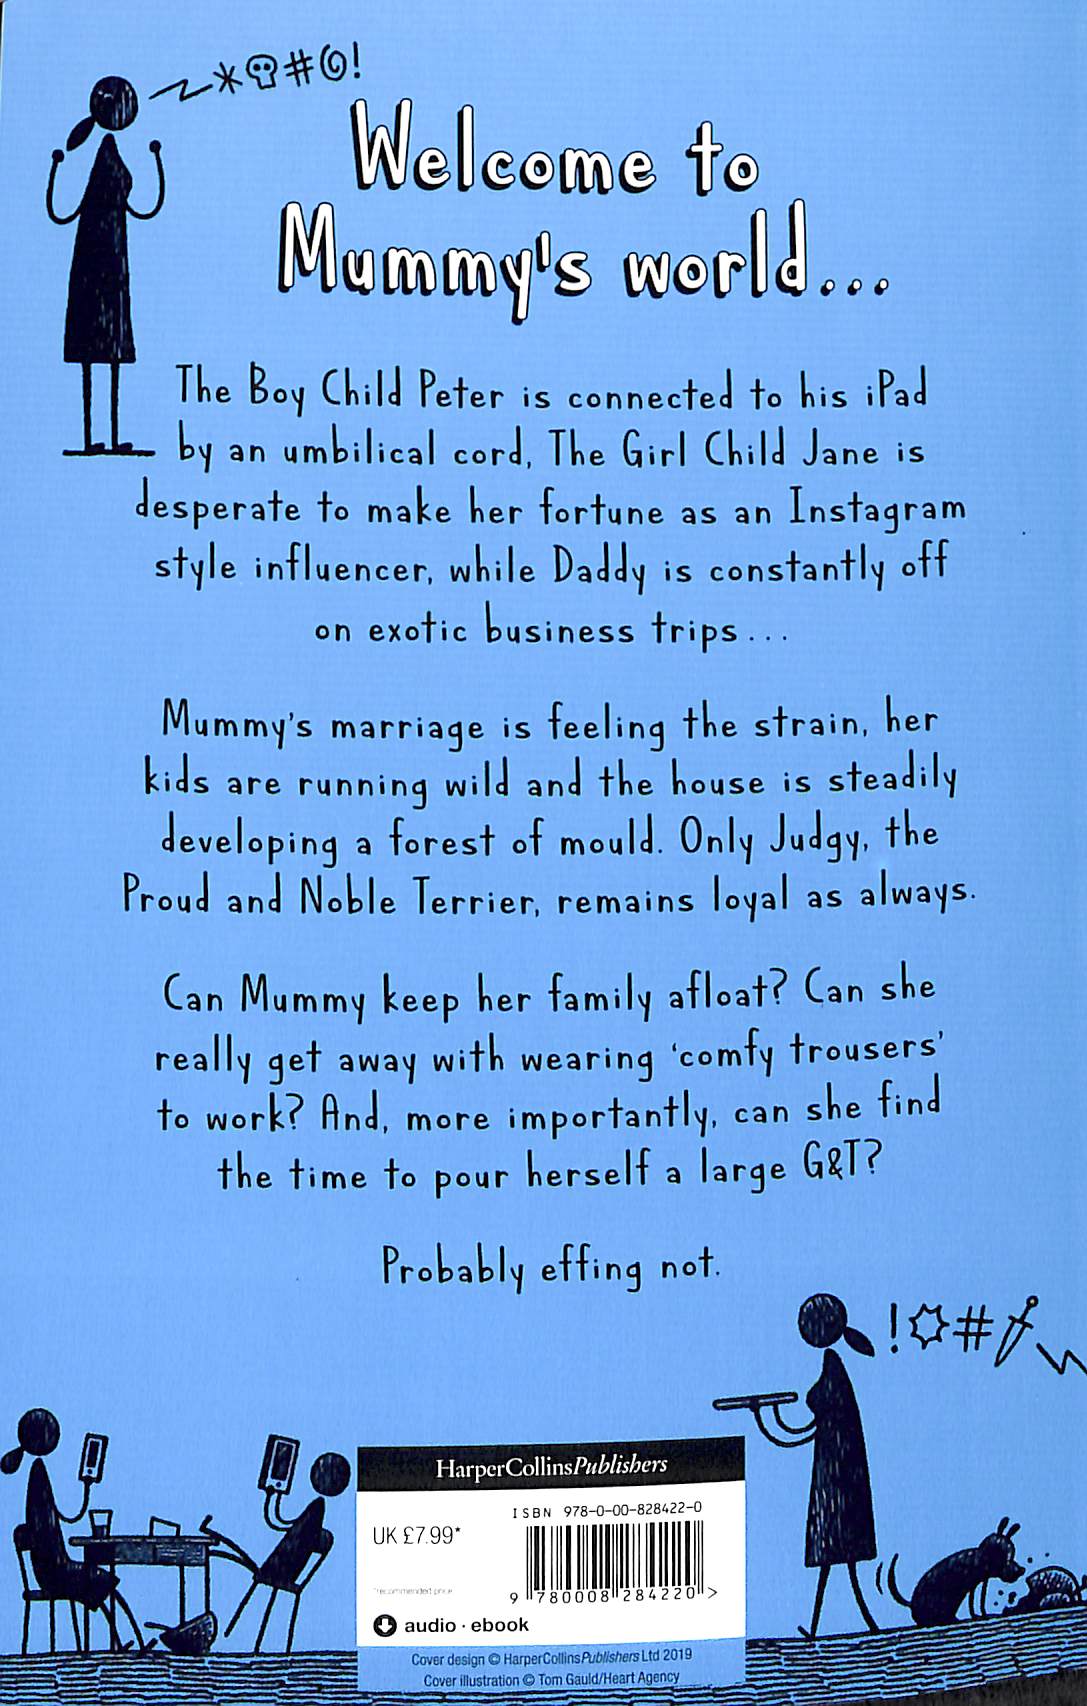 Welcome to
Mummy's world...
The Boy Child Peter is connected to his iPad
by an umbilical cord, The Girl Child Jane is
desperate to make her fortune as an Instagram
style influencer, while Daddy is constantly off
on exotic business trips...
Mummy's marriage is feeling the strain, her
kids are running wild and the house is steadily
developing a forest of mould. Only Judgy, the
Proud and Noble Terrier, remains loyal as always.
Can Mummy keep her family afloat? Can she
really get away with wearing 'comfy trousers'
to work? And, more importantly, can she find
the time to pour herself a large G&T?
Probably effing not.
HarperCollinsPublishers
ISBN 978-0-00-828422-0
UK £7.99*
*recommended price
9 780008 284220 >
audio · ebook
Cover design © HarperCollinsPublishers Ltd 2019
Cover illustration © Tom Gauld/Heart Agency